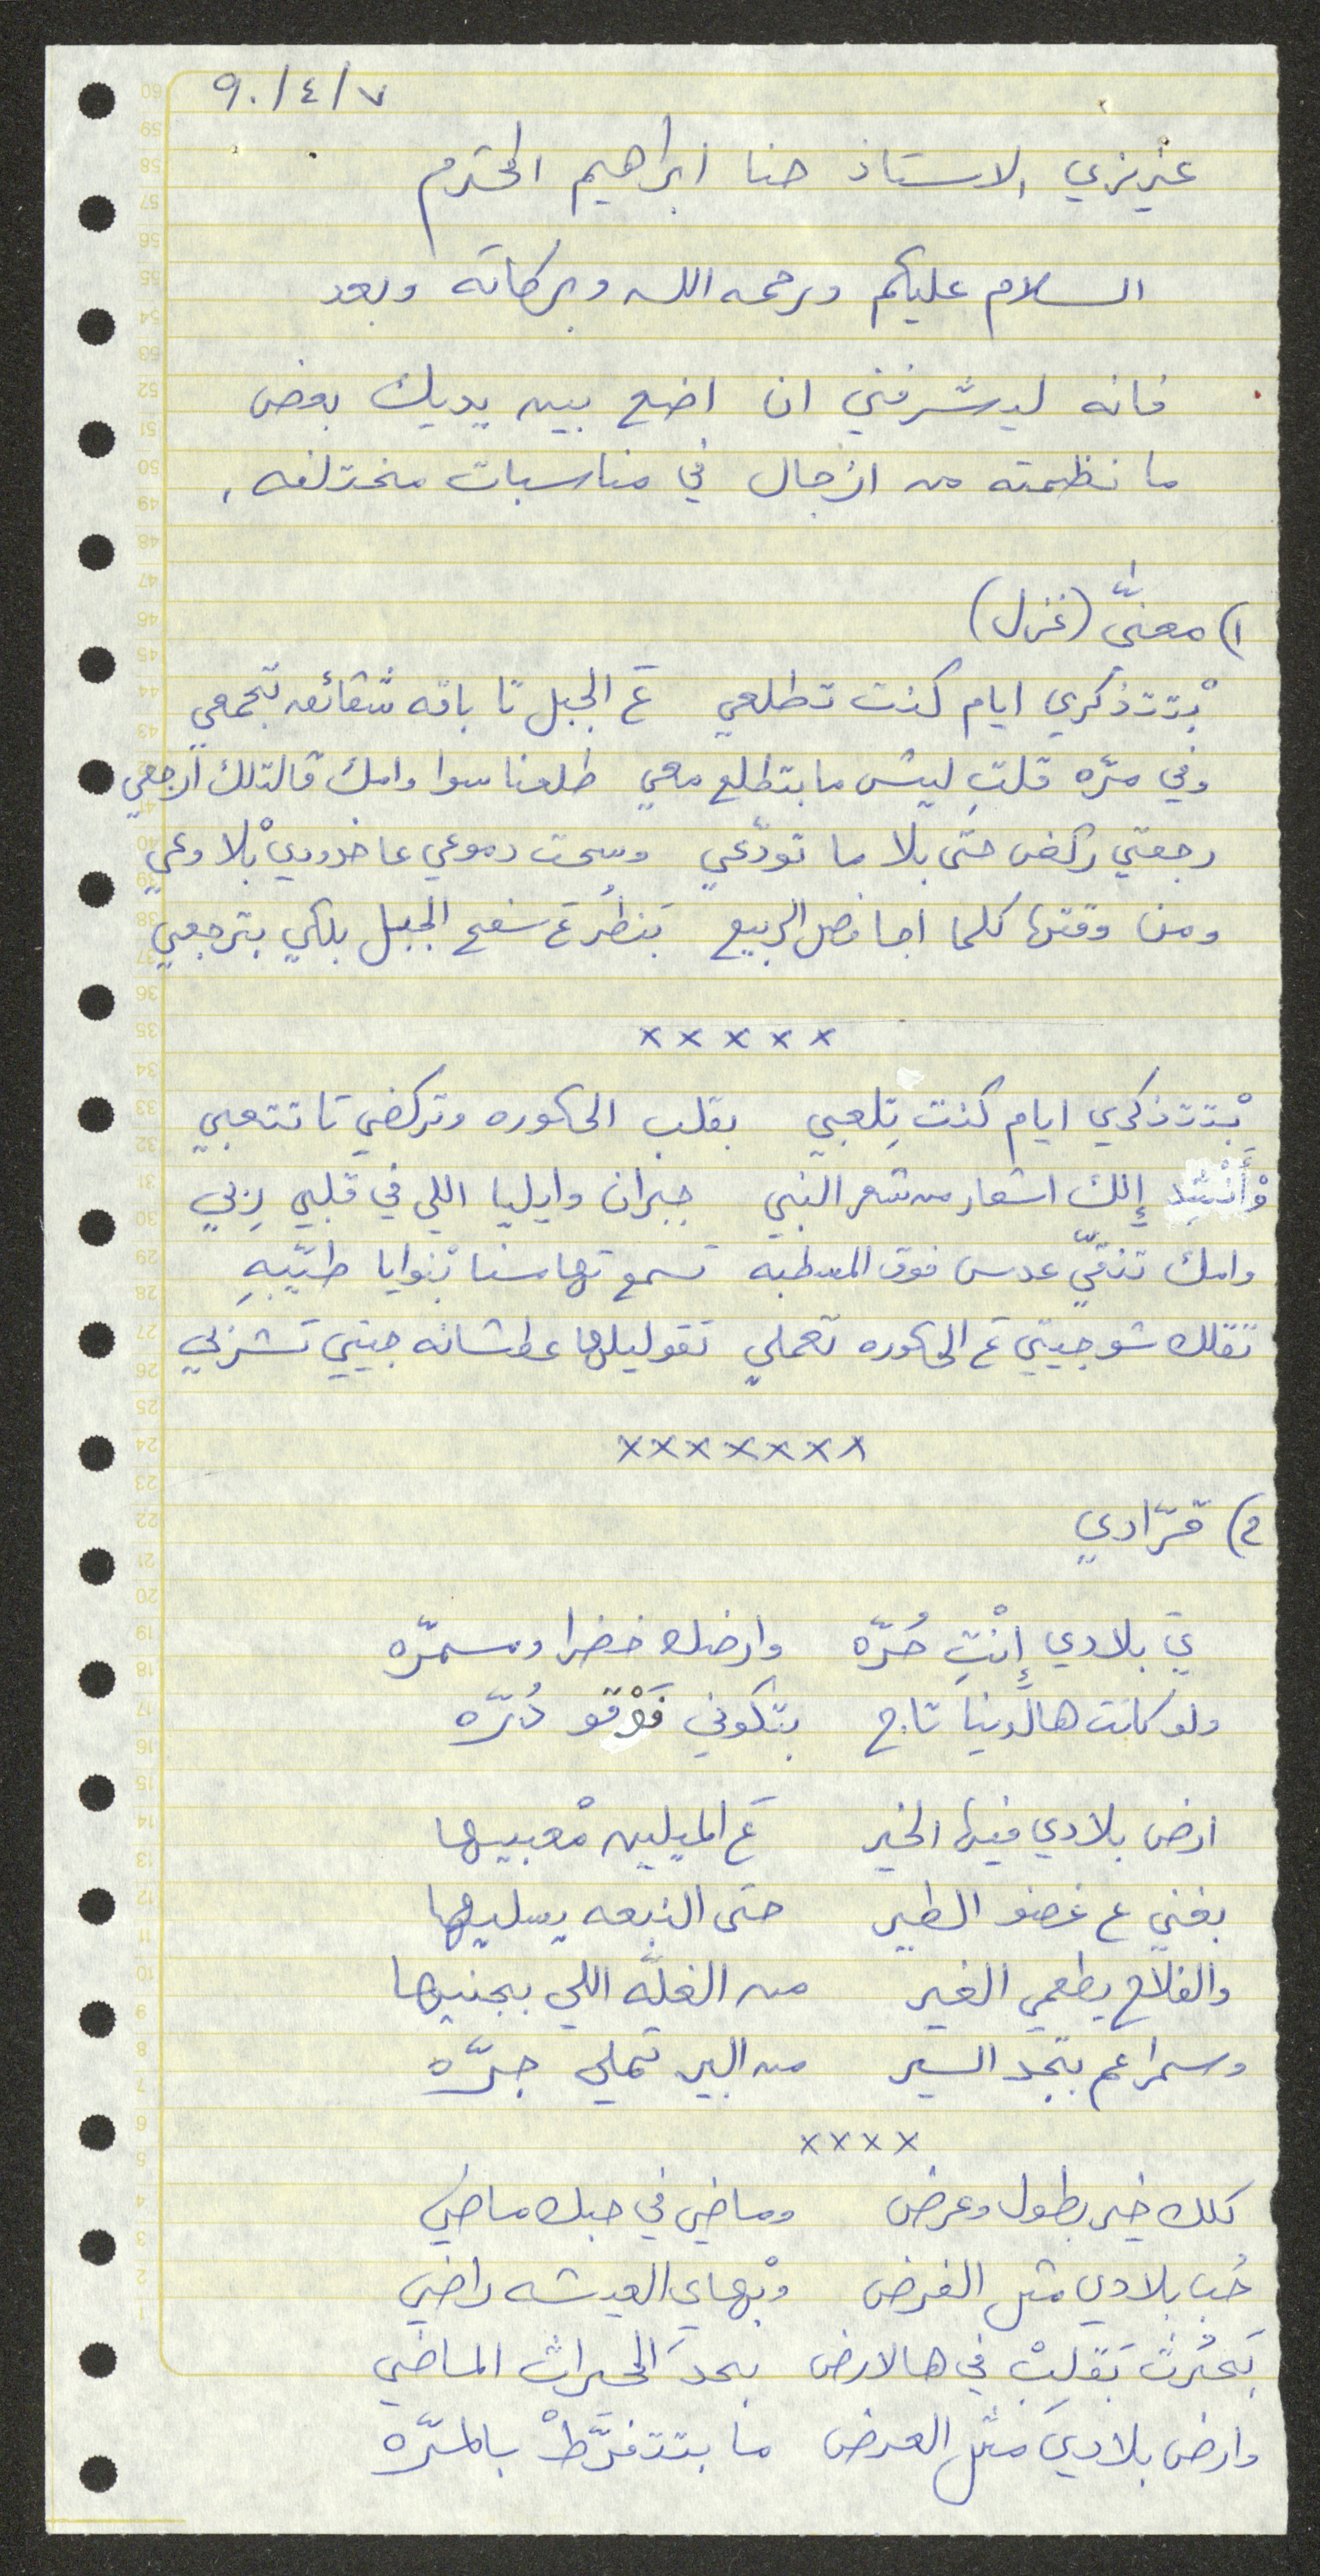 ٩٠/٤/٧
عزيزي الاستاذ حنا ابراهيم المحترم
السلام عليكم ورحمه الله وبركاته وبعد
فانه ليشرفني ان اضع بين يديك بعض
ما نظمته من ازجال في مناسبات مختلفه .
١) معنّى (غزل)
بْتتذكري ايام كنت تطلعي عَ الجبل تا باقه شقائق تجمعي
وفي مرّه قلتِ ليش ما بتطلع معي طلعنا سوا وامك قالتلك ارجعي
رجعتي ركض حتى بلا ما تودّعي وسحت دموعي عا خدودي بْلا وعي
ومن وقتها كلما اجا فصل الربيع بَنطُر عَ سفح الجبل بلكي بترجعي
× × × × ×
بْتتذكري ايام كنت تِلعبي بقلب الحاكوره وتركضي تا تتعبي
وْأَنْشِد إِلك اشعار من شعر النبي جبران وايليا اللي في قلبي رِبي
وامك تنقّي عدس فوق المسطبه تسمع تهامسنا بْنوايا طيّبهِ
تقلك شو جيتي عَ الحاكوره تعملي تقوليلها عطشانه جيتي تشربي
× × × × × × ×
٢) قرّادي
يَ بلادي إِنْتِ حُرّه وارضك خضرا ومسمرّه
ولو كانت هالدّنيا تاج بتكوني فَوْقو دُرّه
ارض بلادي فيها الخير عَ الميلين مْعبيها
بغني ع غصنو الطير حتى النبعه يسليها
والفلاح يطعمي الغير من الغلّه اللي بجنيها
وسمرا عم بتجد السير من البير تملي جرّه
× × × ×
كلك خير بطول وعرض وماضي في حبك ماضي
حُب بلادي مثل الفرض وْبهاي العيشه راضي
بَحْرُث بَقلِبْ في هالارض بحدّ المحراث الماضي
وارض بلادي مثل العرض ما بتتفرَّطْ بالمرّه